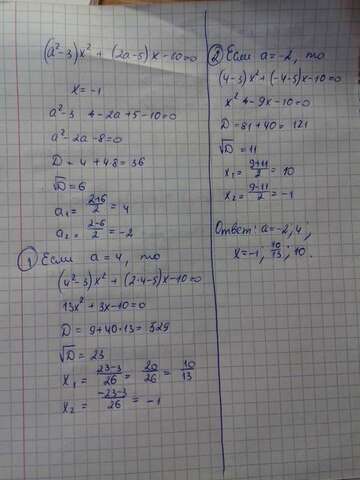 (a²-3)x² + (2a-5)x-10=0
x=-1
a²-3 4-2a+5-10=0
a²-2a-8=0
D = 4 +48=36
√D=6
a₁= (2+6)/2 = 4
a₂= (2-6)/2 = -2
① Если a=4, то
(4²-3)x² + (2·4-5)x-10=0
13x²+3x-10=0
D = 9+40·13=529
√D= 23
x₁ = (23-3)/26 = 20/26 = 10/13
x₂ = (-23-3)/26 = -1
② Если a=-2, то
(4-3)x²+(-4-5)x-10=0
x² 4-9x-10=0
D=81+40= 121
√D=11
x₁= (9+11)/2 = 10
x₂= (9-11)/2 = -1
Ответ: a=-2; 4;
x=-1; 10/13; 10.